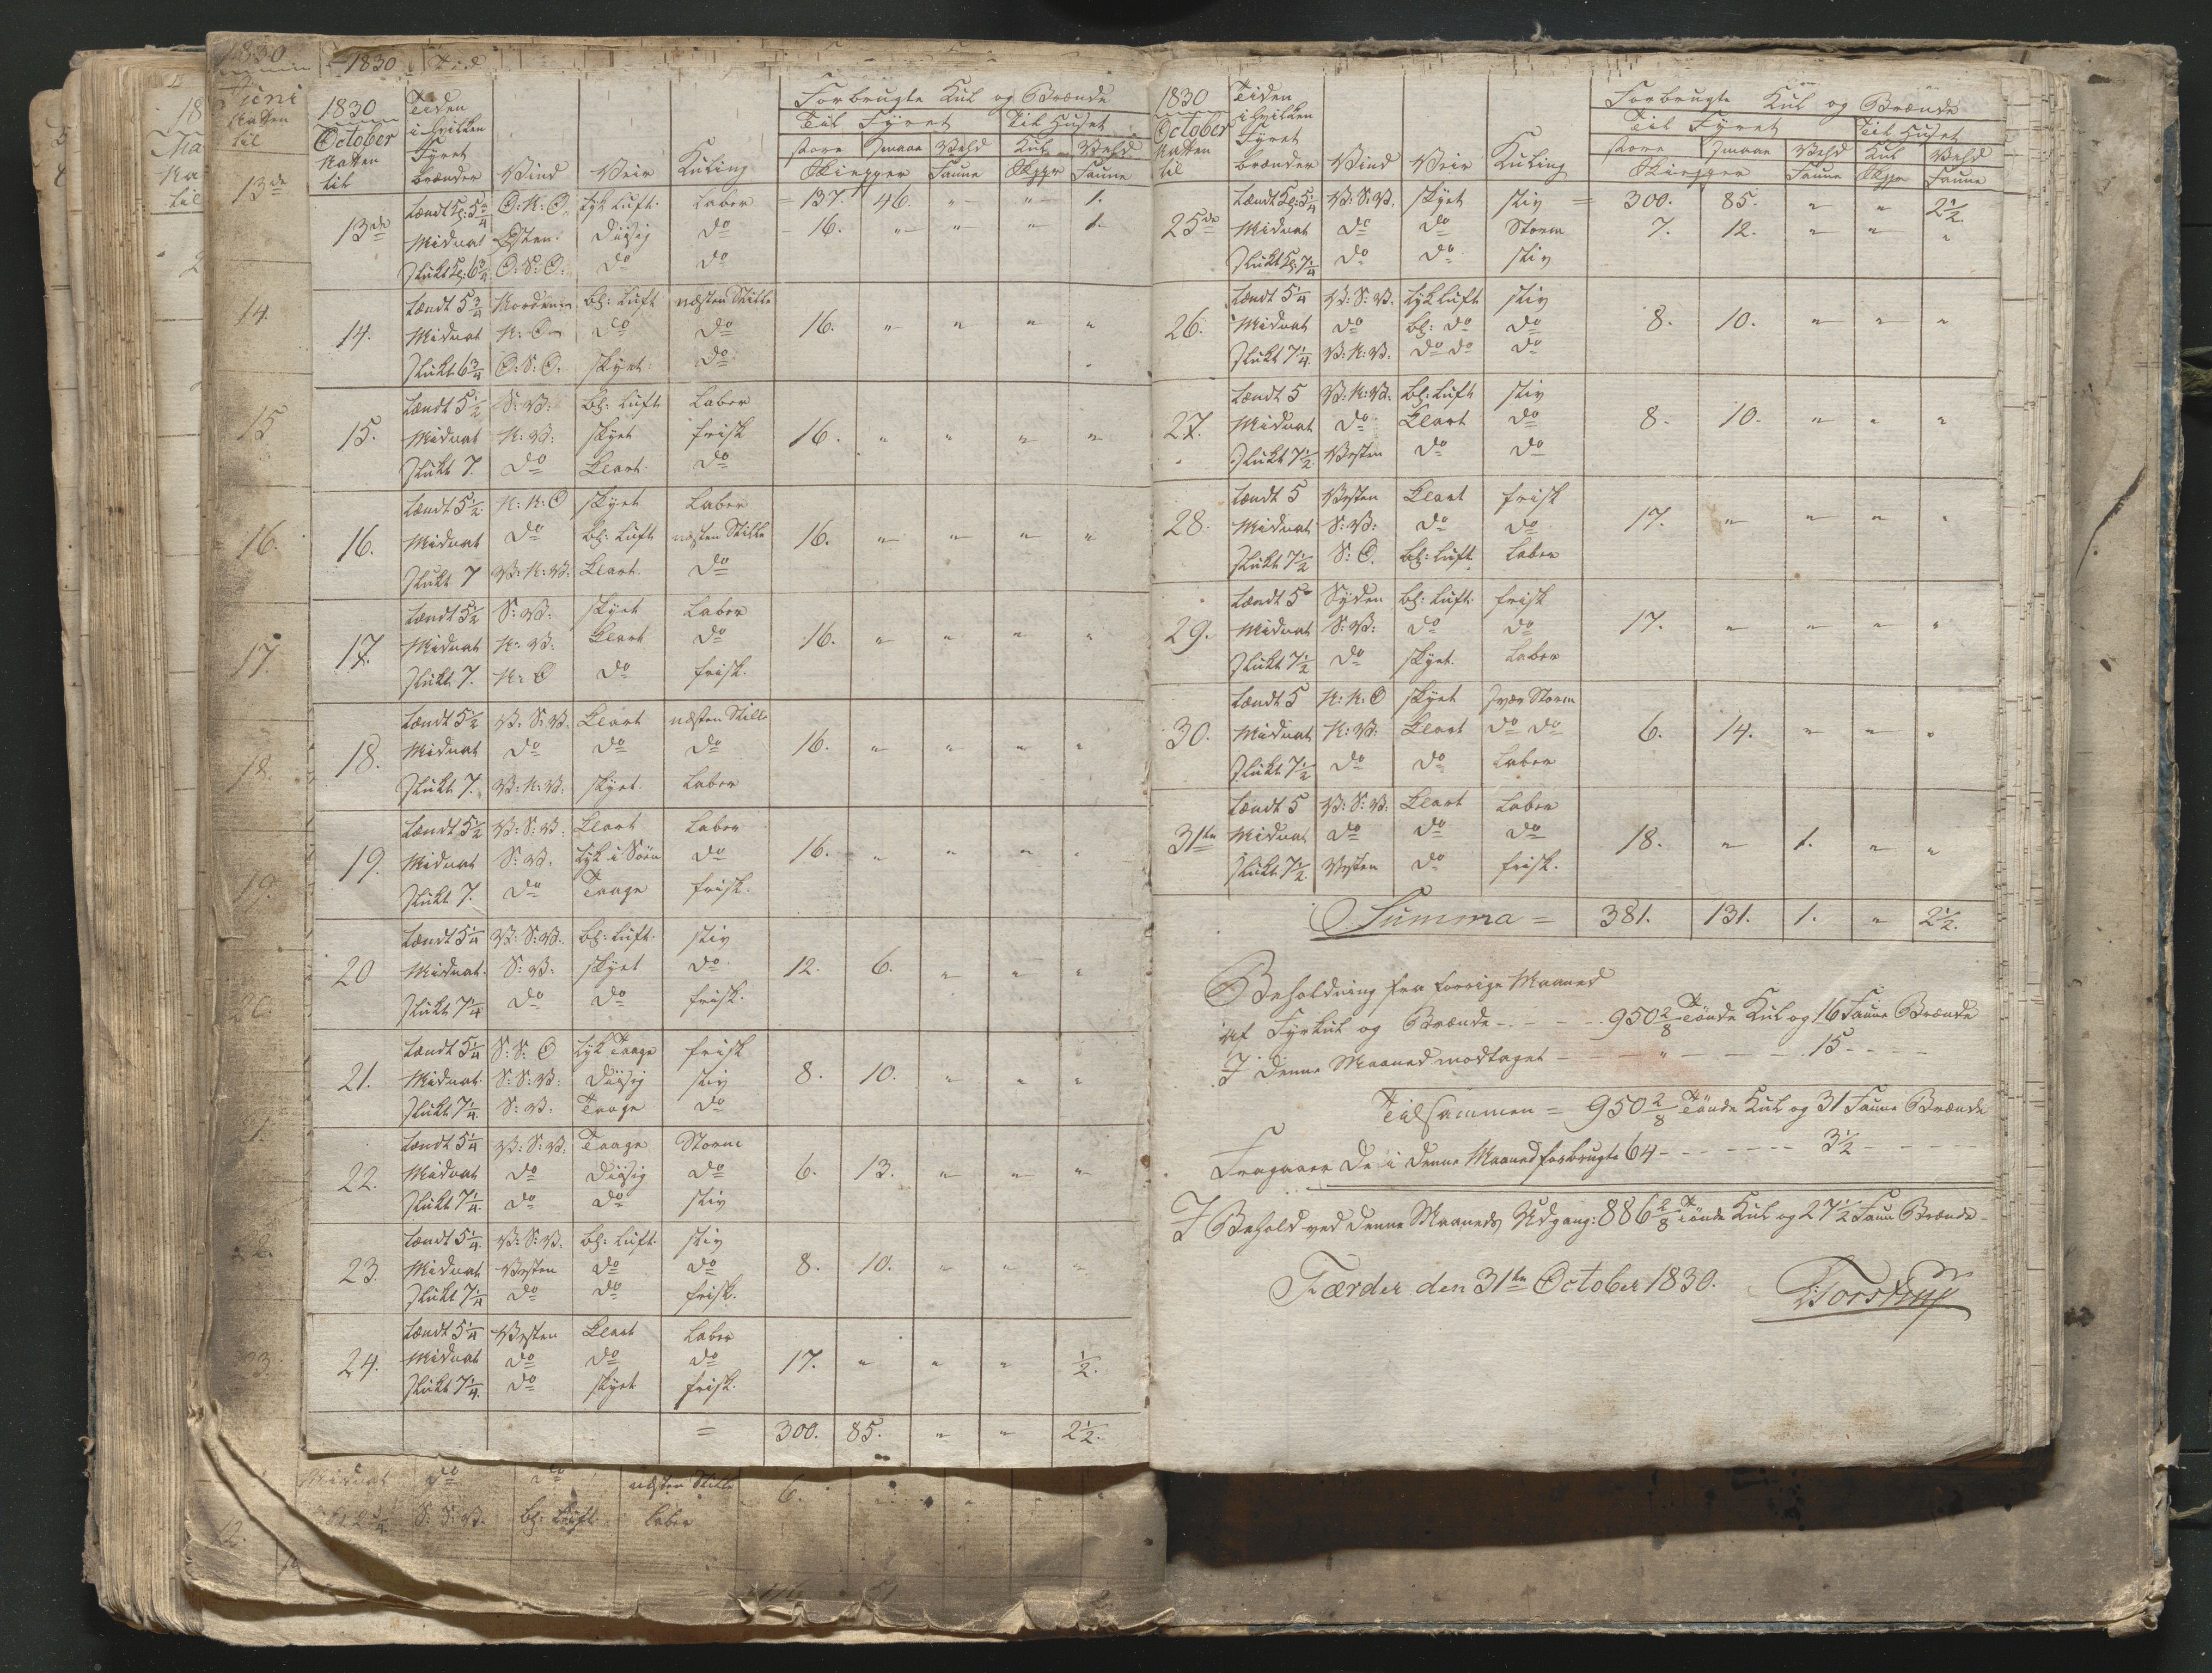 1830
October
Natten
til
Tiden
i hvilken
Fyret
brænder
Vind
Veir
Kuling
Forbrugte Kul og Brænde
Til Fyret
Til Huset
store smaae Vehd Kul Vehd
Skiepper Faune Skppr Faune
13de
tændt Kl: 5 3/4 O: N: O: tyk Luft. Laber = 137. 46. " " 1.
Midnat Østen. Diisig do 16. " " " 1.
slukt Kl: 6 3/4 O: S: O: do do
14.
tændt 5 3/4 Norden bl: Luft næsten Stille
Midnat N: O do do 16. " " " "
slukt 6 3/4 O: S: O. skyet. do
15.
tændt 5 1/2 S: V: bl: Luft Laber
Midnat N: V: skyet frisk 16. " " " "
slukt 7. do Klart. do
16.
tændt 5 1/2 N: N: O skyet Laber
Midnat do bl: Luft næsten Stille 16. " " " "
slukt 7 V: N: V: Klart. do
17.
tændt 5 1/2 S: V: skyet Laber
Midnat N: V: Klart do 16. " " " "
slukt 7. N: O do frisk.
18.
tændt 5 1/2 V. S: V. Klart næsten Stille
Midnat do do do 16. " " " "
slukt 7. V: N: V. skyet. Laber
19.
tændt 5 1/2 V: S: V. Klart Laber
Midnat S: V. tyk i Søen do 16. " " " "
slukt 7. do Taage frisk.
20
tændt 5 1/4 V: S: V. bl: Luft. stiv
Midnat. S: V: skyet do 12. 6. " " "
slukt 7 1/4 do do frisk.
21.
tændt 5 1/4 S: S: O tyk Taage frisk
Midnat. S: S: V: Diisig stiv 8. 10. " " "
slukt 7 1/4. S: V: Taage do
22.
tændt 5 1/4 V: S: V. Taage Storm
Midnat do Diisig do 6. 13. " " "
slukt 7 1/4 do do stiv
23.
tændt 5 1/4. V: S: V. bl: Luft. stiv
Midnat Vesten do do 8. 10. " " "
slukt 7 1/4 do do frisk.
24.
tændt 5 1/4 Vesten Klart Laber
Midnat do do do 17. " " " 1/2.
slukt 7 1/4. do skyet frisk.
= 300. 85. " " 2 1/2.
1830
October
Natten
til
Tiden
i hvilken
Fyret
brænder
Vind
Veir
Kuling
Forbrugte Kul og Brænde
Til Fyret
Til Huset
store smaae Vehd Kul Vehd
Skiepper Faune Skppr Faune
25de
tændt Kl: 5 1/4 V: S: V. skyet stiv = 300. 85. " " 2 1/2.
Midnat do do Storm 7. 12. " " "
slukt Kl: 7 1/4 do do stiv
26.
tændt 5 1/4 V: S: V. tyk Luft stiv
Midnat do bl: do do 8. 10. " " "
slukt 7 1/4. V: N: V. do do do
27.
tændt 5 V: N: V. bl: Luft stiv
Midnat do Klart do 8. 10. " " "
slukt 7 1/2. Vesten do do
28.
tændt 5 Vesten Klart frisk
Midnat S: V: do do 17. " " " "
slukt 7 1/2 S: O. bl: Luft. Laber
29.
tændt 5 Syden bl: Luft. frisk
Midnat S: V: do do 17. " " " "
slukt 7 1/2 do skyet. Laber
30.
tændt 5 N: N: O skyet svær Storm
Midnat N: V: Klart do do 6. 14. " " "
slukt 7 1/2 do do Laber
31te
tændt 5 V: S: V: Klart Laber
Midnat do do do 18. " 1. " "
slukt 7 1/2. Vesten do frisk.
Summa = 381. 131. 1. " 2 1/2.
Beholdning fra forrige Maaned
af Fyrkul og Brænde - - - - - 950 2/8 Tønde Kul og 16 Faune Brænde
I denne Maaned modtaget - - - " - - - 15 - - -
Tilsammen = 950 2/8 Tønde Kul og 31 Faune Brænde
Fragaaer de i denne Maaned forbrugte 64 - - - - - - - 3 1/2 - - - -
I Behold ved denne Maaneds Udgang: 886 2/8 Tønde Kul og 27 1/2 Faun Brænde -
Færder den 31te October 1830.
Torstrup
1830
Juni
Natten
til
13de
14.
15
16.
17.
18.
19.
20.
21.
22.
23.
Midnat do do næsten Stille 6.
S: S: V. bl: Luft Laber